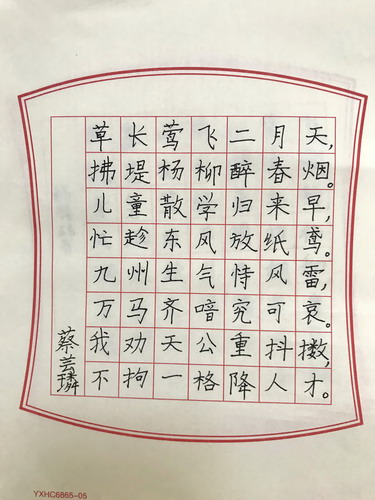 草长莺飞二月天,
拂堤杨柳醉春烟。
儿童散学归来早,
忙趁东风放纸鸢。
九州生气恃风雷,
万马齐喑究可哀。
我劝天公重抖擞,
不拘一格降人才。
蔡芸璘
YXHC6865-05